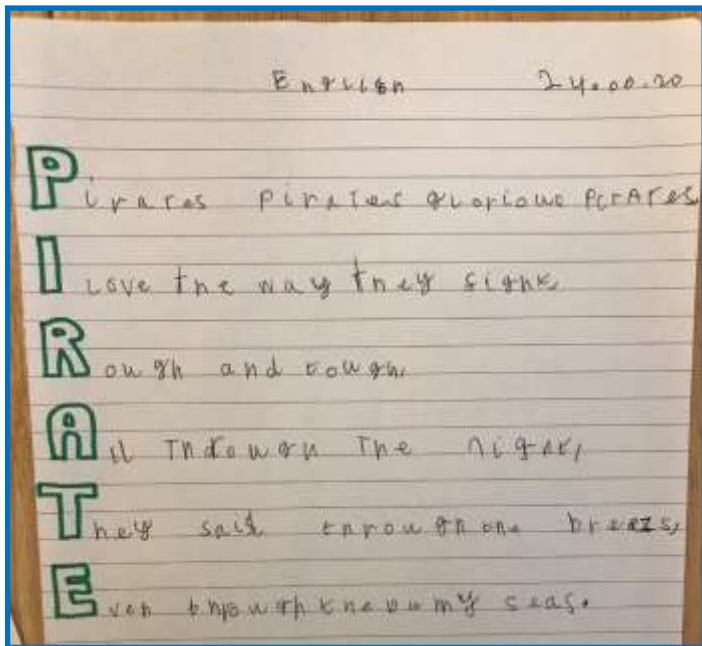 English 24.00.20
Pirates Pirates glorious Pirates
I Love the way they fight,
Rough and tough,
All Through The night,
They sail through the breezs,
Even through the seas.